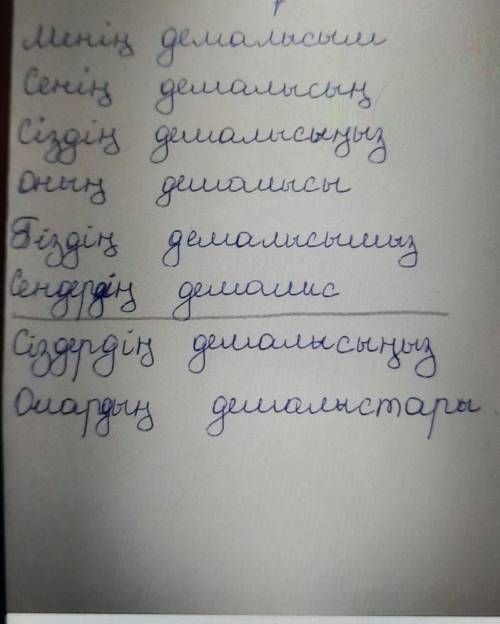 Менің демалысым
Сенің демалысың
Сіздің демалысыңыз
Оның демалысы
Біздің демалысымыз
Сендердің демалис
Сіздердің демалысыңыз
Олардың демалыстары